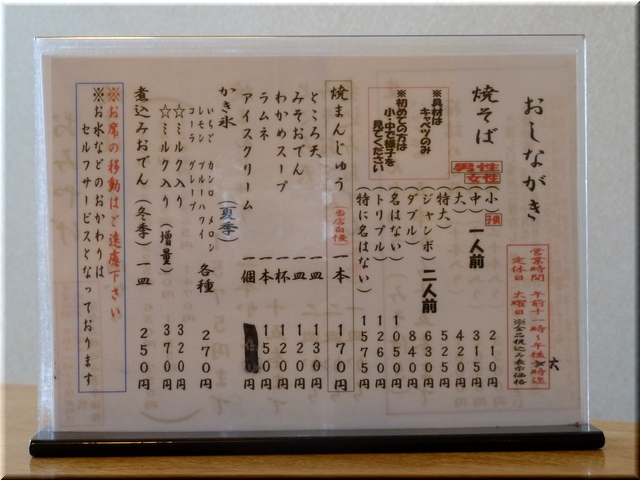 おしながき
営業時間 午前十一時～午後六時迄
定休日 火曜日 ※全品税込み表示価格
焼そば
※具材は
キャベツのみ
※初めての方は
小・中で様子を
見てください
男性
女性
小 子供 210円
(中) 一人前 315円
(大) 420円
(特大) 525円
(ジャンボ) 二人前 630円
(ダブル) 840円
(名はない) 1050円
(トリプル) 1260円
(特に名はない) 1575円
焼まんじゅう (当店自慢) 一本 170円
ところ天 一皿 130円
みそおでん 一皿 120円
わかめスープ 一杯 120円
ラムネ 一本 150円
アイスクリーム 一個 円
かき氷 (夏季)
いちご カンロ メロン
レモン ブルーハワイ
コーラ グレープ
各種 270円
☆ミルク入り 320円
☆ミルク入り (増量) 370円
煮込みおでん (冬季) 一皿 250円
※お席の移動はご遠慮下さい
※お水などのおかわりは
セルフサービスとなっております